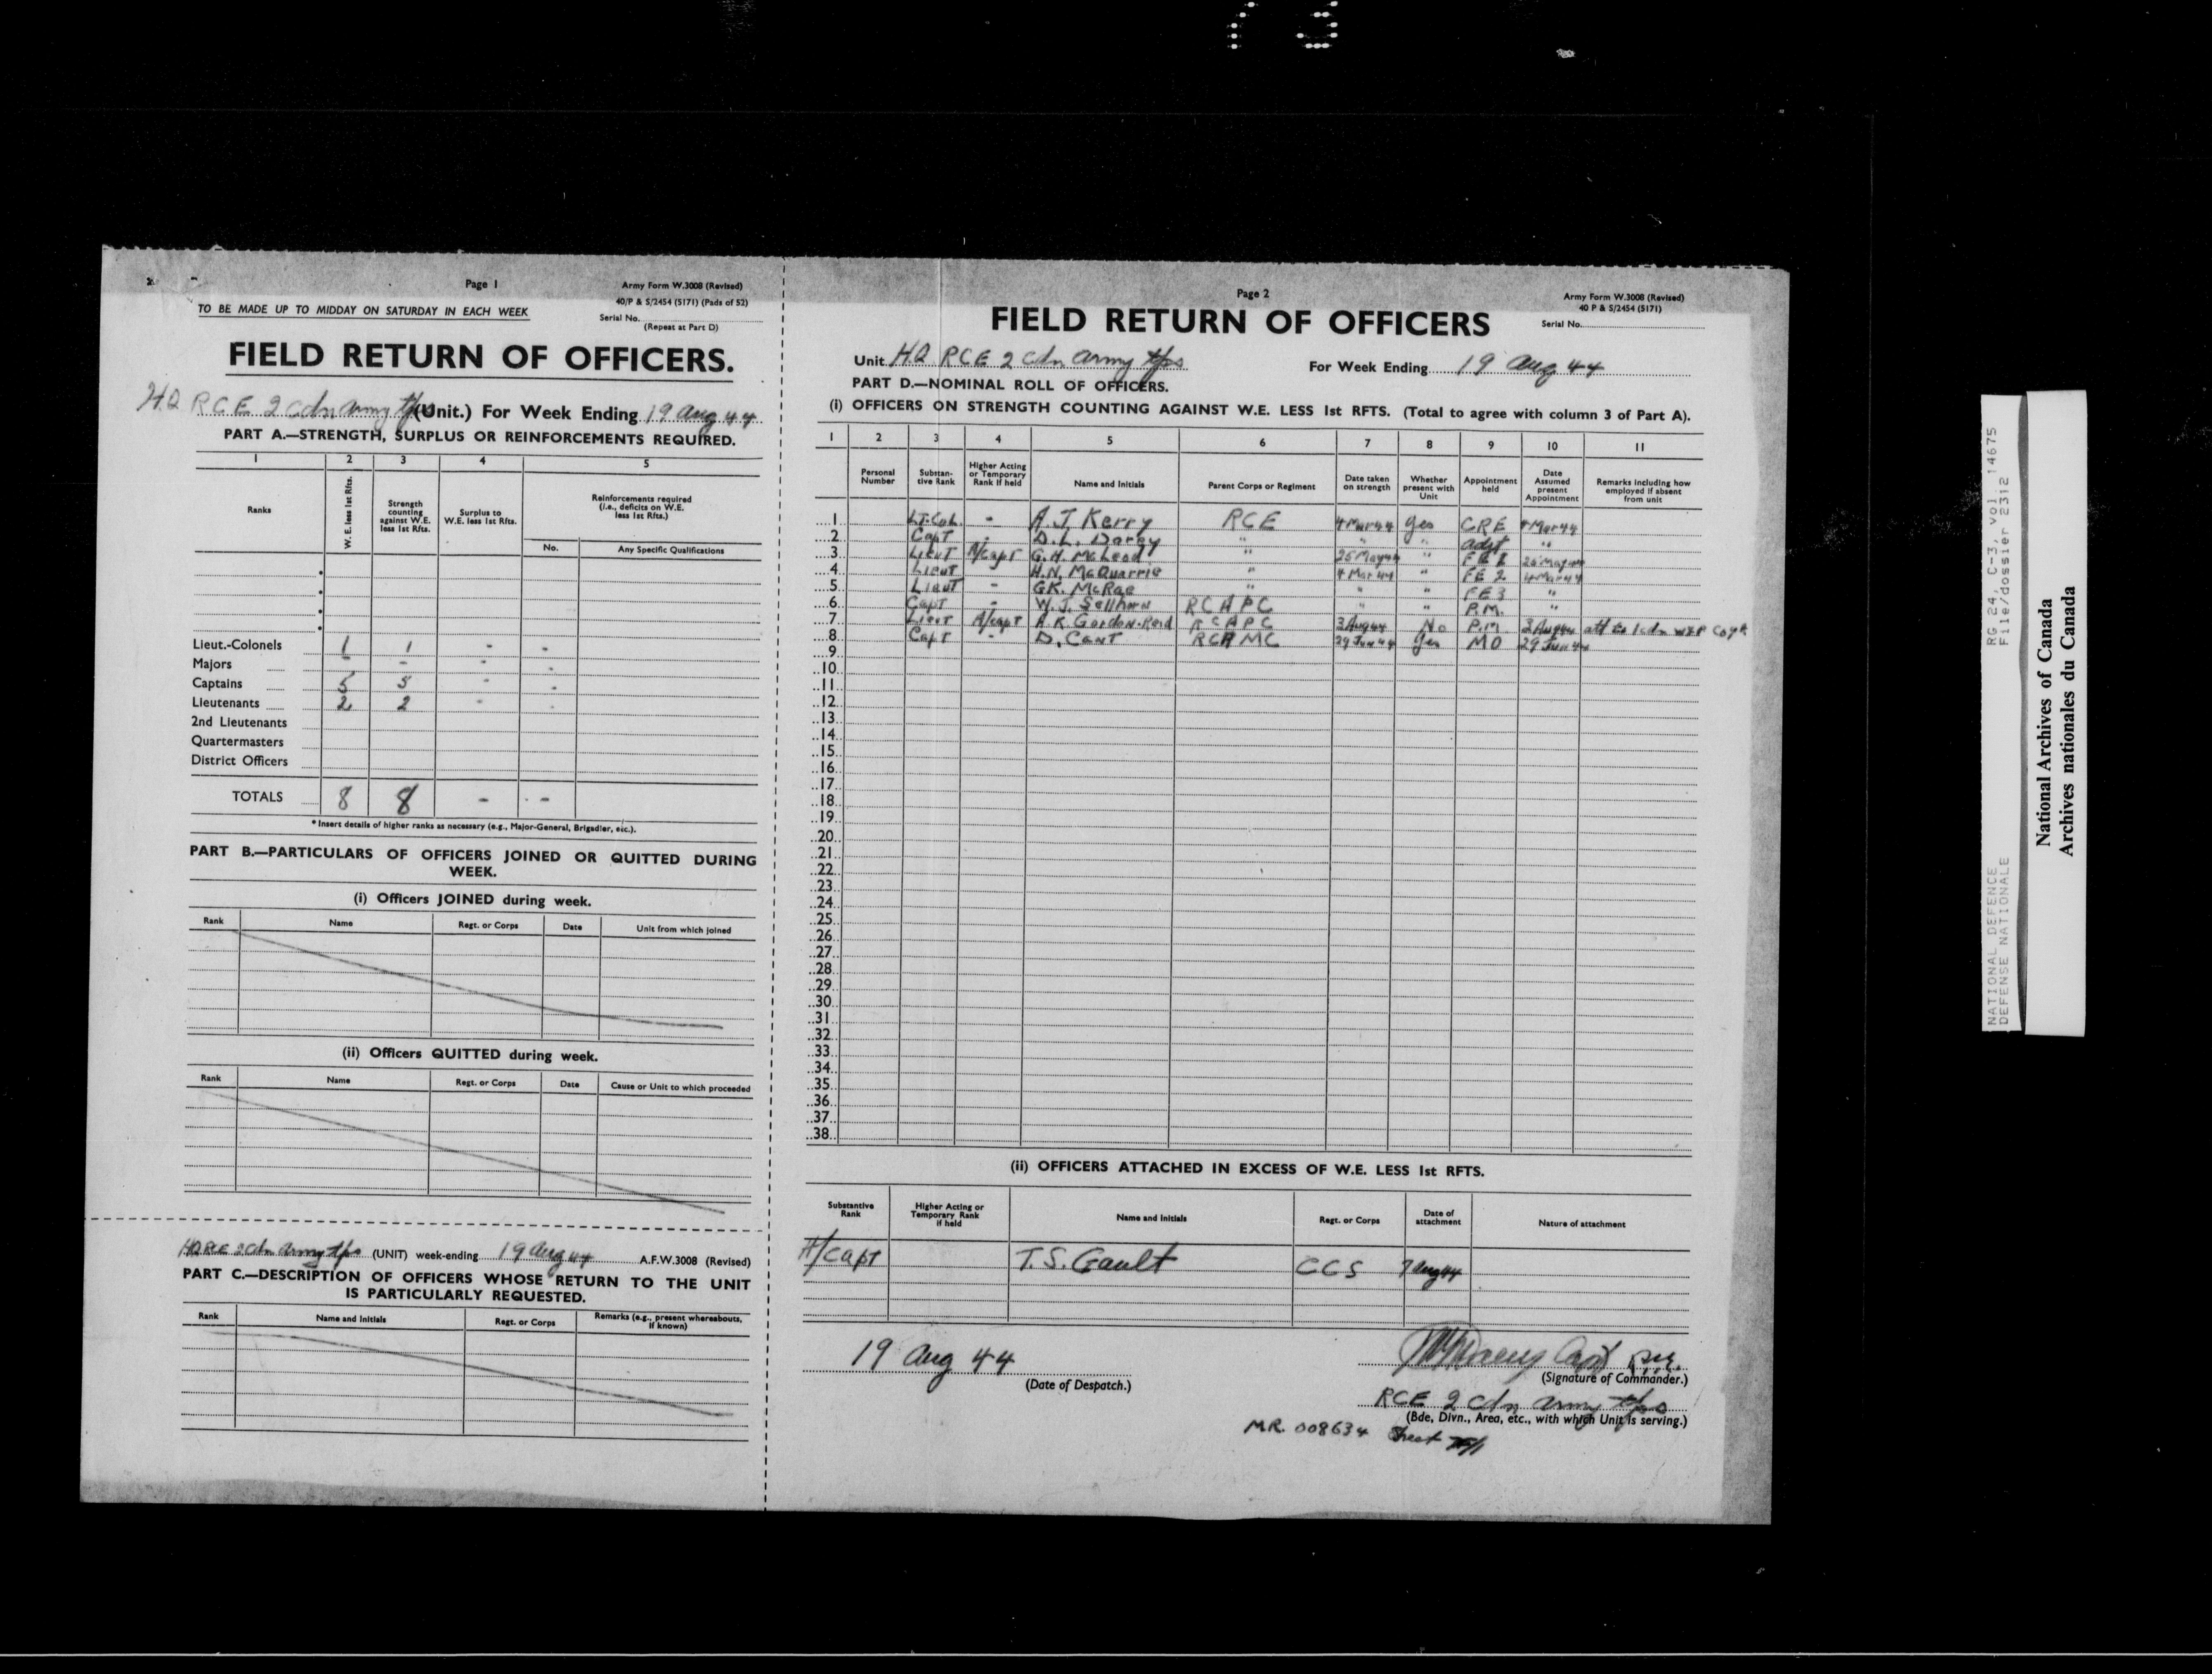 Page 1
Army Form W.3008 (Revised)
40/P & S/2454 (5171) (Pads of 52)
TO BE MADE UP TO MIDDAY ON SATURDAY IN EACH WEEK
Serial No.
(Repeat at Part D)
FIELD RETURN OF OFFICERS.
HQ RCE 2 Cdn Army tps (Unit.) For Week Ending 19 Aug 44
PART A.—STRENGTH, SURPLUS OR REINFORCEMENTS REQUIRED.
1 2 3 4 5
Ranks
W.E. less 1st Rfts.
Strength counting against W.E. less 1st Rfts.
Surplus to W.E. less 1st Rfts.
Reinforcements required (i.e., deficits on W.E. less 1st Rfts.)
No. Any Specific Qualifications
Lieut.-Colonels 1 1 - -
Majors - - - -
Captains 5 5 - -
Lieutenants 2 2 - -
2nd Lieutenants
Quartermasters
District Officers
TOTALS 8 8 - - -
* Insert details of higher ranks as necessary (e.g., Major-General, Brigadier, etc.).
PART B.—PARTICULARS OF OFFICERS JOINED OR QUITTED DURING
WEEK.
(i) Officers JOINED during week.
Rank Name Regt. or Corps Date Unit from which joined
(ii) Officers QUITTED during week.
Rank Name Regt. or Corps Date Cause or Unit to which proceeded
HQ RCE 2 Cdn Army tps (UNIT) week-ending 19 Aug 44 A.F.W.3008 (Revised)
PART C.—DESCRIPTION OF OFFICERS WHOSE RETURN TO THE UNIT
IS PARTICULARLY REQUESTED.
Rank Name and Initials Regt. or Corps Remarks (e.g., present whereabouts, if known)
Page 2
Army Form W.3008 (Revised)
40 P & S/2454 (5171)
Serial No.
FIELD RETURN OF OFFICERS
Unit HQ RCE 2 Cdn Army tps For Week Ending 19 Aug 44
PART D.—NOMINAL ROLL OF OFFICERS.
(i) OFFICERS ON STRENGTH COUNTING AGAINST W.E. LESS 1st RFTS. (Total to agree with column 3 of Part A).
1 2 3 4 5 6 7 8 9 10 11
Personal Number
Substantive Rank
Higher Acting or Temporary Rank if held
Name and Initials
Parent Corps or Regiment
Date taken on strength
Whether present with Unit
Appointment held
Date Assumed present Appointment
Remarks including how employed if absent from unit
1 Lt.Col. - A.J. Kerry RCE 4 Mar 44 Yes CRE 4 Mar 44
2 Capt - D.L. Dorey " " " Adjt "
3 Lieut A/Capt G.H. McLeod " 25 May 44 " FE 1 25 May 44
4 Lieut H.N. McQuarrie " 4 Mar 44 " FE 2 4 Mar 44
5 Lieut - G.K. McRae " " " FE 3 "
6 Capt - W.J. Sellhorn RCAPC " " P.M. "
7 Lieut A/Capt A.K. Gordon-Reid RCAPC 3 Aug 44 No P.M 3 Aug 44 att to 1 Cdn
8 Capt - D. Cant RCAMC 29 Jun 44 Yes MO 29 Jun 44
9
10
11
12
13
14
15
16
17
18
19
20
21
22
23
24
25
26
27
28
29
30
31
32
33
34
35
36
37
38
(ii) OFFICERS ATTACHED IN EXCESS OF W.E. LESS 1st RFTS.
Substantive Rank
Higher Acting or Temporary Rank if held
Name and Initials
Regt. or Corps
Date of attachment
Nature of attachment
H/Capt T.S. Gault CCS 7 Aug 44
19 Aug 44
(Date of Despatch.)
Capt
(Signature of Commander.)
RCE 2 Cdn Army tps
(Bde, Divn., Area, etc., with which Unit is serving.)
MR. 008634 Sheet
NATIONAL DEFENCE RG 24, C-3, vol 14675
DEFENSE NATIONALE File/dossier 2312
National Archives of Canada
Archives nationales du Canada